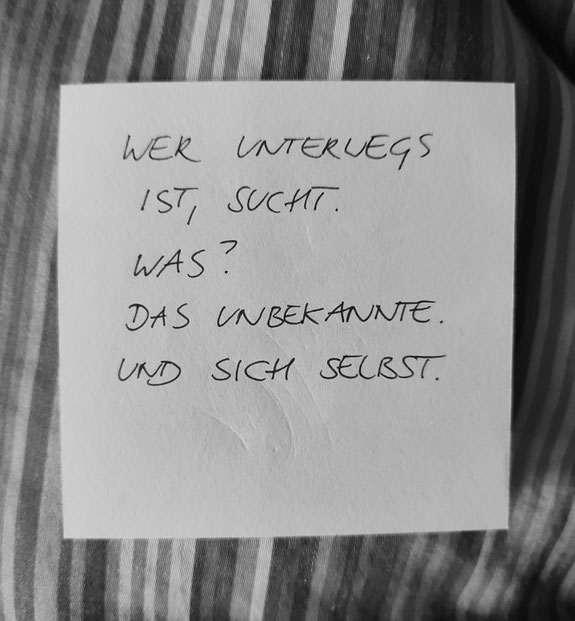 WER UNTERWEGS
IST, SUCHT.
WAS?
DAS UNBEKANNTE.
UND SICH SELBST.